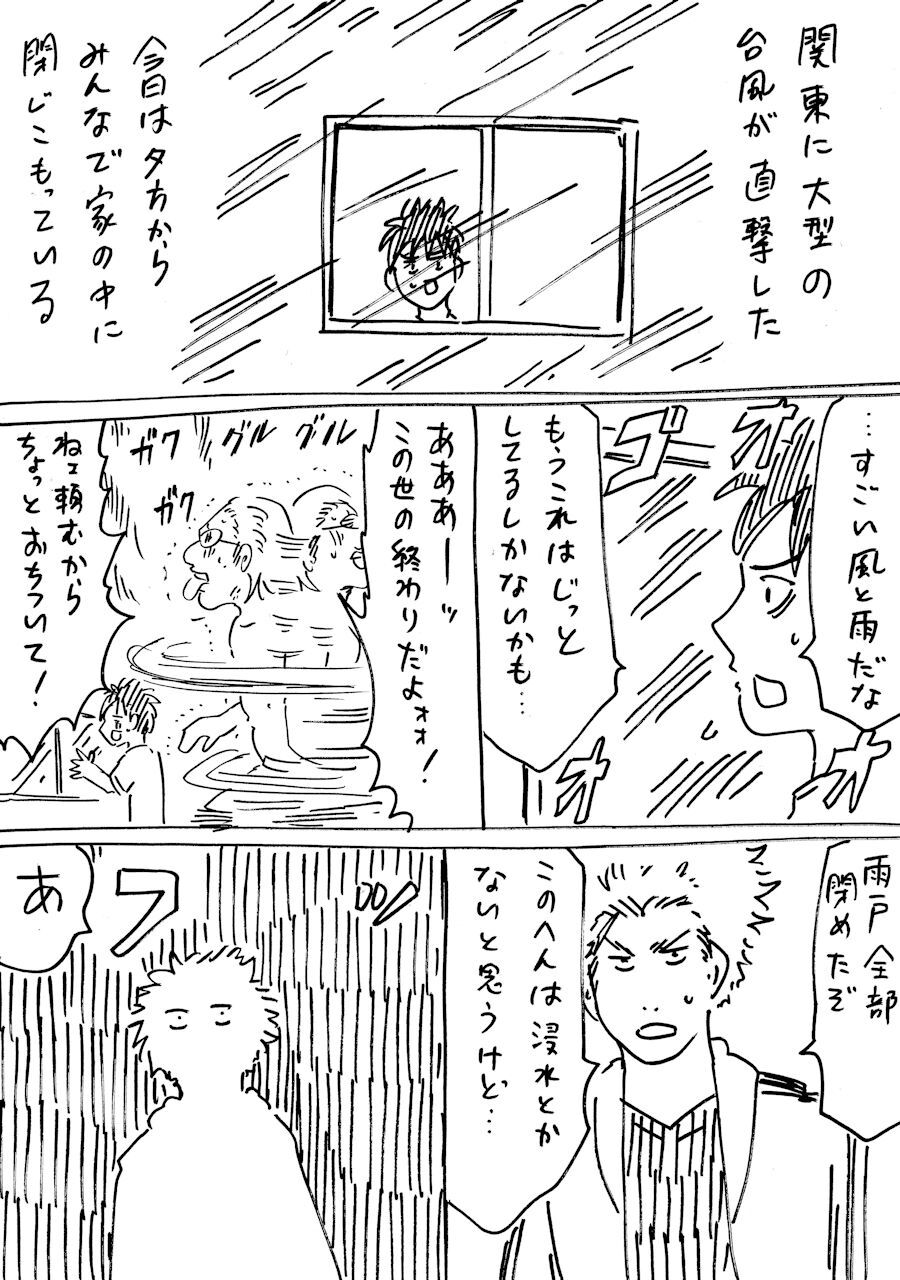 関東に大型の
台風が直撃した
今日は夕方から
みんなで家の中に
閉じこもっている
…すごい風と雨だな
ゴー
オ
オ
オ
もうこれはじっと
してるしかないかも…
あああーーッ
この世の終わりだよォォ!
グル
グル
ガク
ガク
ねェ頼むから
ちょっとおちついて!
雨戸全部
閉めたぞ
このへんは浸水とか
ないと思うけど…
フッ
あ